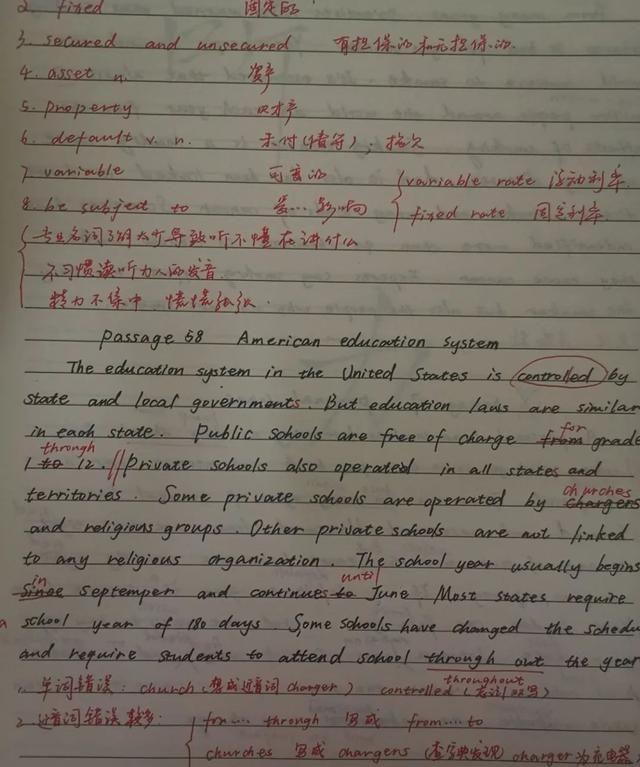 2. fixed 固定的
3. secured and unsecured 有担保的和无担保的.
4. asset n. 资产
5. property 财产
6. default v. n. 未付(债务); 拖欠
7. variable 可变的 variable rate 浮动利率
8. be subject to 受...影响 fixed rate 固定利率
专业名词了解太少导致听不懂在讲什么
不习惯读听力人的发音
精力不集中,慌慌张张.
passage 58 American education system
The education system in the United States is controlled by
state and local governments. But education laws are similar
in each state. Public schools are free of charge from for grade
1 to through 12. // Private schools also operated in all states and
territories. Some private schools are operated by chargers churches
and religious groups. Other private schools are not linked
to any religious organization. The school year usually begins
since in septemper and continues to until June. Most states require
a school year of 180 days. Some schools have changed the schedu
and require students to attend school through out the year
throughout
1. 单词错误: church (想成近音词 charger) controlled
2. 近音词错误较多: for... through 写成 from... to
churches 写成 chargers (查字典发现) charger为充电器